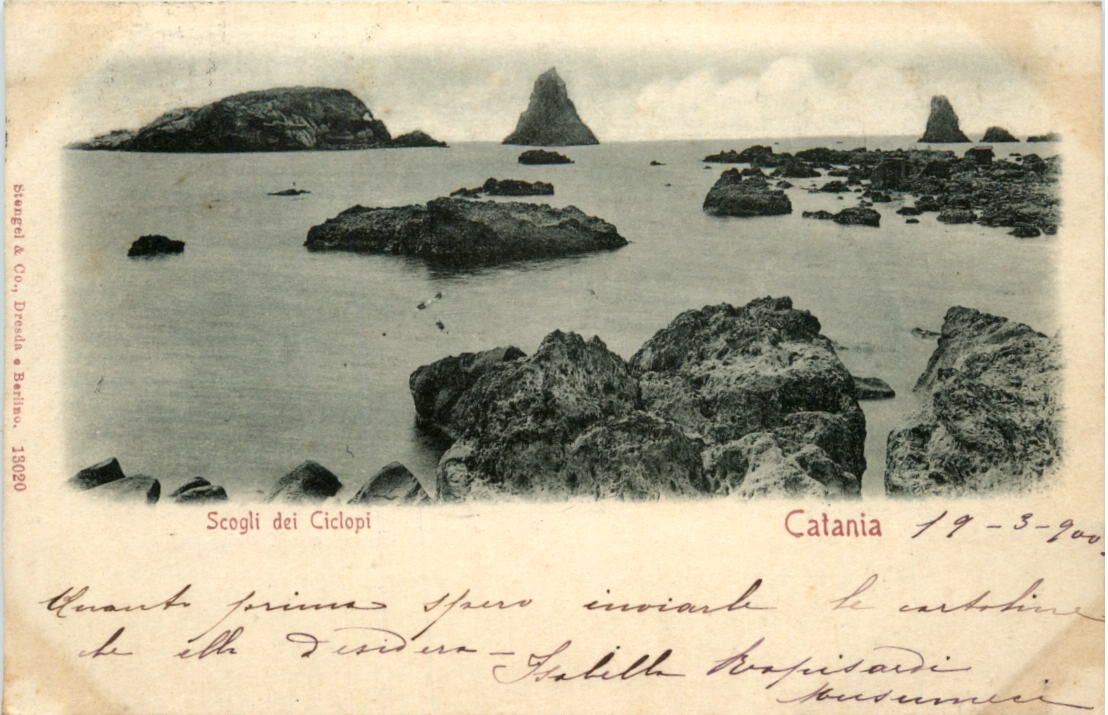 Stengel & Co., Dresda e Berlino. 13020
Scogli dei Ciclopi
Catania 19-3-900.
Quanto prima spero inviarle le cartoline
che ella desidera - Isabella Rapisardi
Musumeci